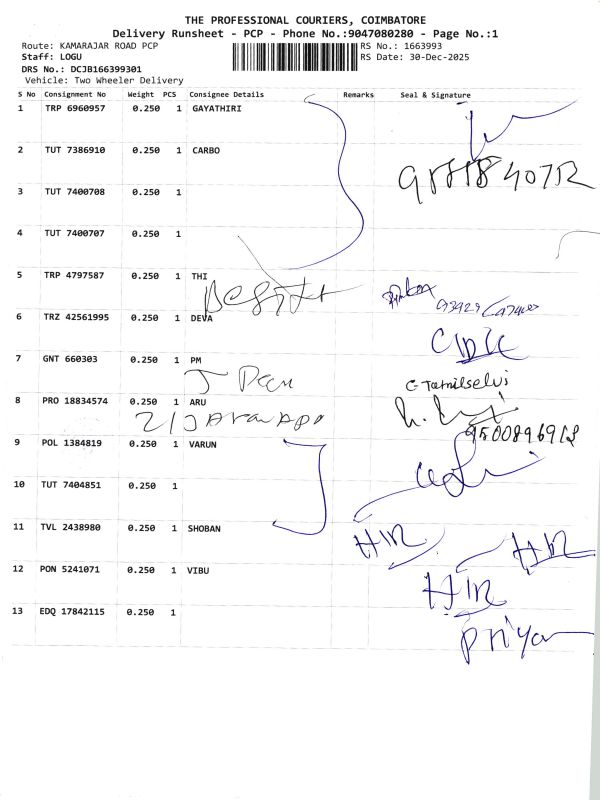 THE PROFESSIONAL COURIERS, COIMBATORE
Delivery Runsheet - PCP - Phone No.:9047080280 - Page No.:1
Route: KAMARAJAR ROAD PCP RS No.: 1663993
Staff: LOGU RS Date: 30-Dec-2025
DRS No.: DCJB166399301
Vehicle: Two Wheeler Delivery
S No Consignment No Weight PCS Consignee Details Remarks Seal & Signature
1 TRP 6960957 0.250 1 GAYATHIRI
2 TUT 7386910 0.250 1 CARBO
3 TUT 7400708 0.250 1
4 TUT 7400707 0.250 1
5 TRP 4797587 0.250 1 THI
6 TRZ 42561995 0.250 1 DEVA
7 GNT 660303 0.250 1 PM
C-Tamilselvi
8 PRO 18834574 0.250 1 ARU
9500896912
9 POL 1384819 0.250 1 VARUN
10 TUT 7404851 0.250 1
11 TVL 2438980 0.250 1 SHOBAN
12 PON 5241071 0.250 1 VIBU
13 EDQ 17842115 0.250 1
Priya